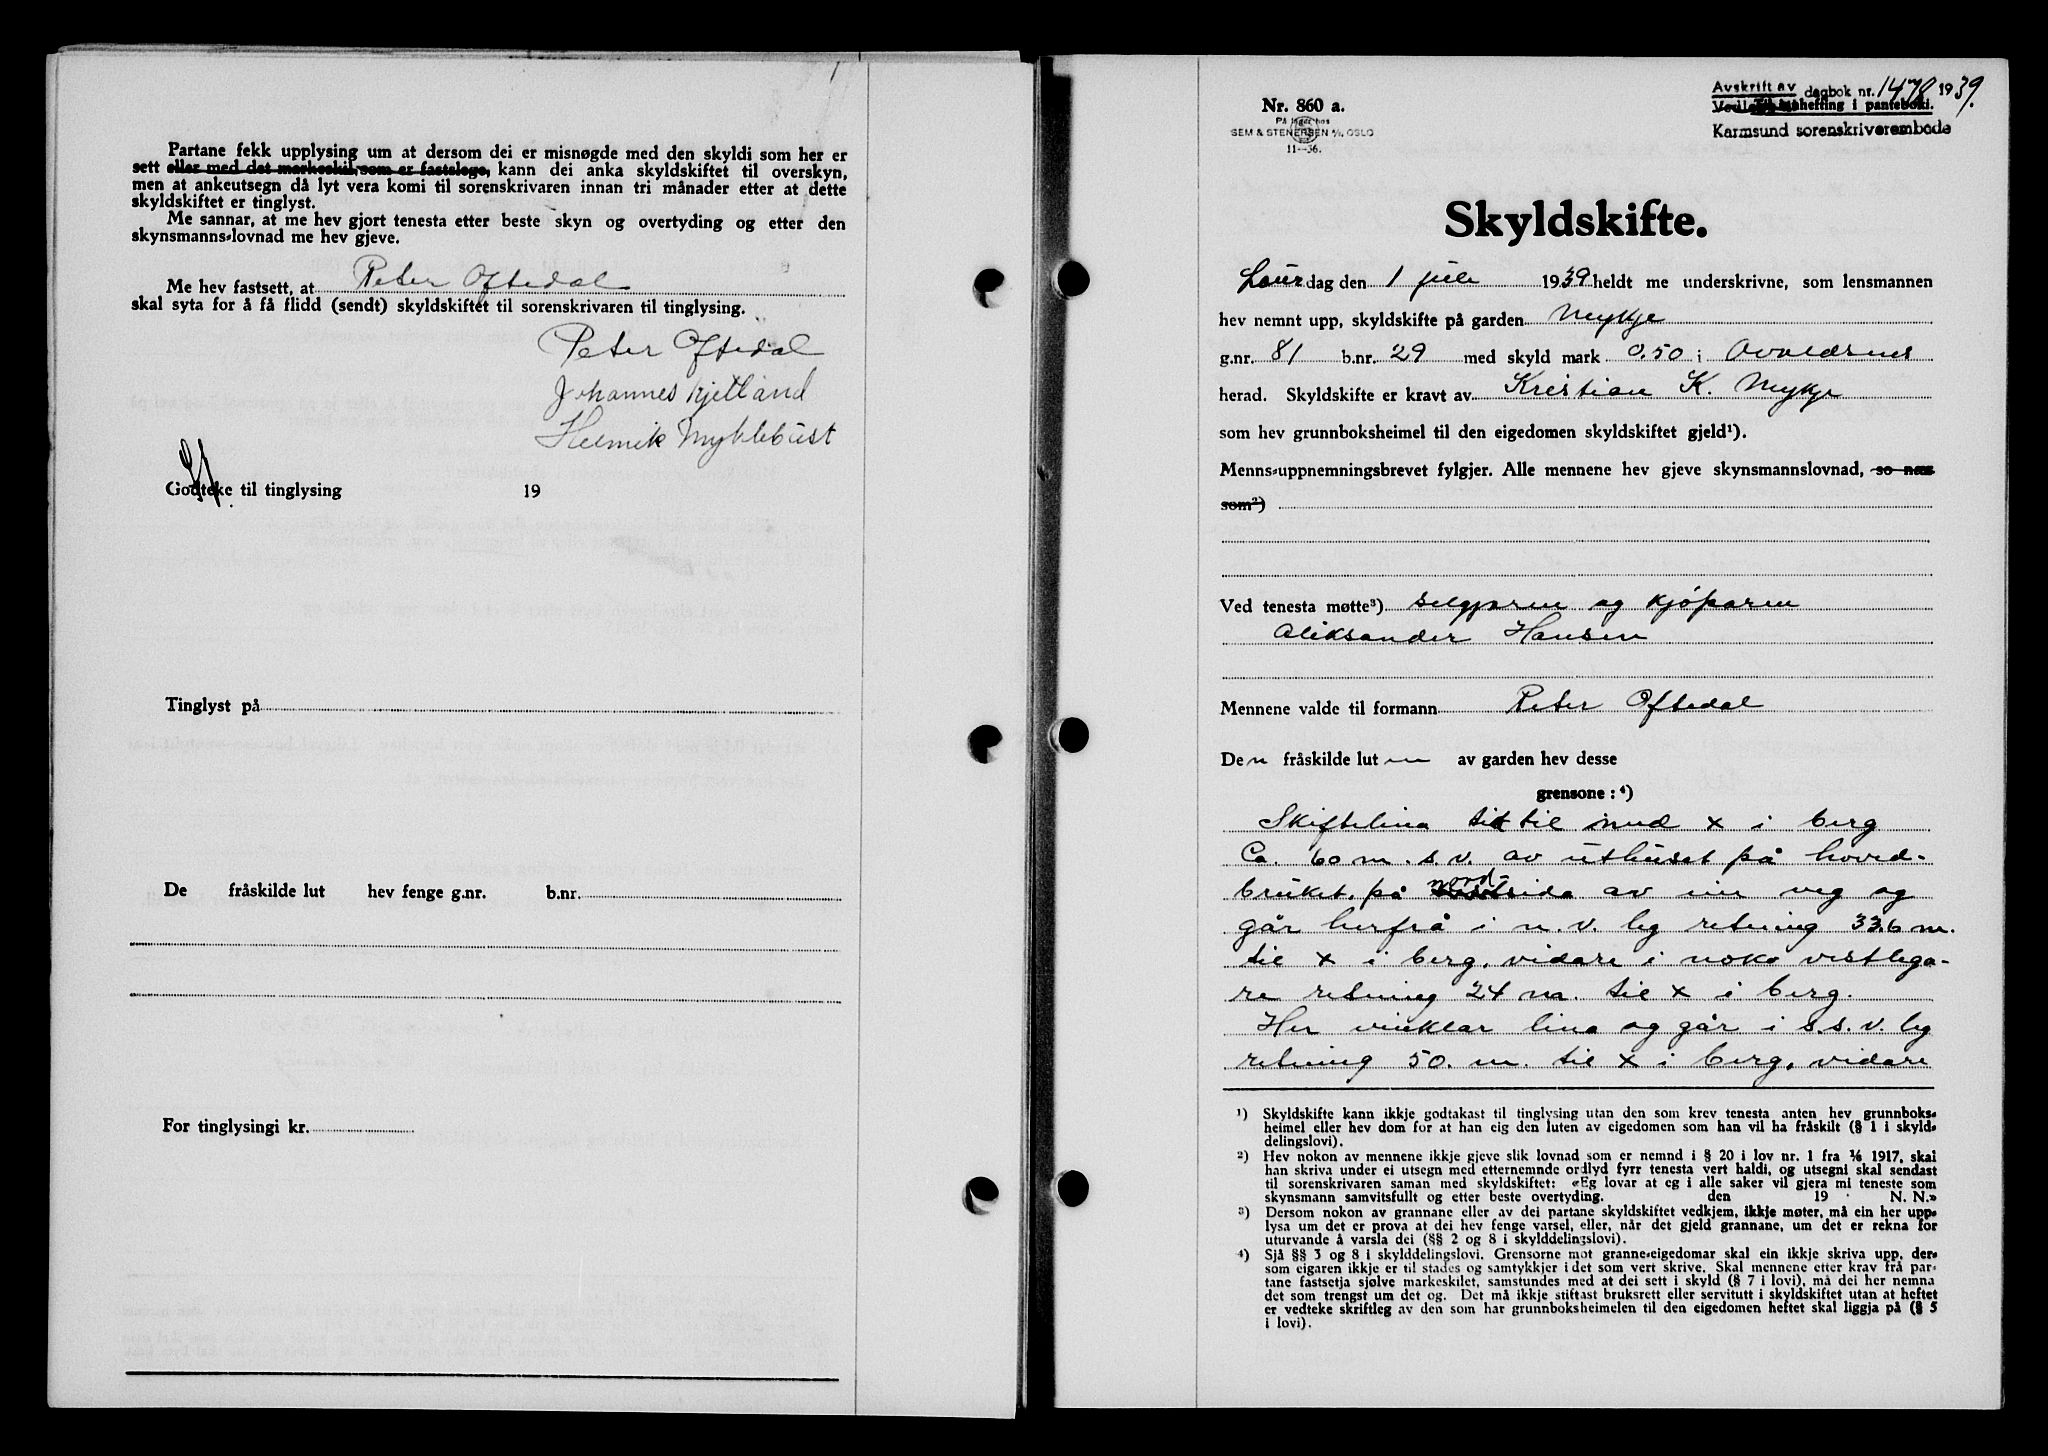 Partane fekk upplysing um at dersom dei er misnøgde med den skyldi som her er
sett eller med det markeskil, som er fastsloge, kann dei anka skyldskiftet til overskyn,
men at ankeutsegn då lyt vera komi til sorenskrivaren innan tri månader etter at dette
skyldskiftet er tinglyst.
Me sannar, at me hev gjort tenesta etter beste skyn og overtyding og etter den
skynsmanns-lovnad me hev gjeve.
Me hev fastsett, at Peter Oftedal
skal syta for å få flidd (sendt) skyldskiftet til sorenskrivaren til tinglysing.
Peter Oftedal
Johannes Kjetland
Helmik Myklebust
Godteke til tinglysing 19
Tinglyst på
De fråskilde lut hev fenge g.nr. b.nr.
For tinglysingi kr.
Nr. 860 a.
På lager hos
SEM & STENERSEN A/S, OSLO
11—36.
Avskrift av dagbok nr. 1478 1939.
Til innhefting i panteboki.
Karmsund sorenskriverembede
Skyldskifte.
Laurdag den 1 juli 1939 heldt me underskrivne, som lensmannen
hev nemnt upp, skyldskifte på garden Mykje
g.nr. 81 b.nr. 29 med skyld mark 0,50 i Avaldsnes
herad. Skyldskifte er kravt av Kristian K. Mykje
som hev grunnboksheimel til den eigedomen skyldskiftet gjeld¹).
Menns-uppnemningsbrevet fylgjer. Alle mennene hev gjeve skynsmannslovnad, so nær
som²)
Ved tenesta møtte³) seljaren og kjøparen
Aleksander Hansen
Mennene valde til formann Peter Oftedal
Den fråskilde luten av garden hev desse
grensone: ⁴)
Skiftelina tek til med x i berg
Ca. 60 m. s.v. av uthuset på hoved-
bruket, på nordsida av ein veg og
går herfrå i n.v. leg retning 33.6 m.
til x i berg, vidare i noko vestlega-
re retning 24 m. til x i berg.
Her vinklar lina og går i s.s.v. leg
retning 50. m. til x i berg, vidare
¹) Skyldskifte kann ikkje godtakast til tinglysing utan den som krev tenesta anten hev grunnboks-
heimel eller hev dom for at han eig den luten av eigedomen som han vil ha fråskilt (§ 1 i skyld-
delingslovi).
²) Hev nokon av mennene ikkje gjeve slik lovnad som er nemnd i § 20 i lov nr. 1 fra 1/6 1917, skal
han skriva under ei utsegn med etternemnde ordlyd fyrr tenesta vert haldi, og utsegni skal sendast
til sorenskrivaren saman med skyldskiftet: «Eg lovar at eg i alle saker vil gjera mi teneste som
skynsmann samvitsfullt og etter beste overtyding. den 19 . N. N.»
³) Dersom nokon av grannane eller av dei partane skyldskiftet vedkjem, ikkje møter, må ein her upp-
lysa um det er prova at dei hev fenge varsel, eller, når det gjeld grannane, um det er rekna for
uturvande å varsla dei (§§ 2 og 8 i skylddelingslovi).
⁴) Sjå §§ 3 og 8 i skylddelingslovi. Grensorne mot granne-eigedomar skal ein ikkje skriva upp, der-
som eigaren ikkje er til stades og samtykkjer i det som vert skrive. Skal mennene etter krav frå par-
tane fastsetja sjølve markeskilet, samstundes med at dei sett i skyld (§ 7 i lovi), må dei her nemna
det som trengst um det og. Det må ikkje stiftast bruksrett eller servitutt i skyldskiftet utan at heftet
er vedteke skriftleg av den som har grunnboksheimelen til den eigedomen heftet skal liggja på (§ 5
i lovi).